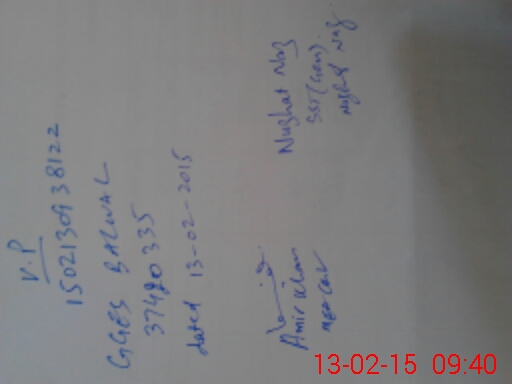 V.P
1502130938122
GGES BALWAL
37420335
dated 13-02-2015
Amir Khan
Nughat Naz
SST (Gen)
13-02-15 09:40